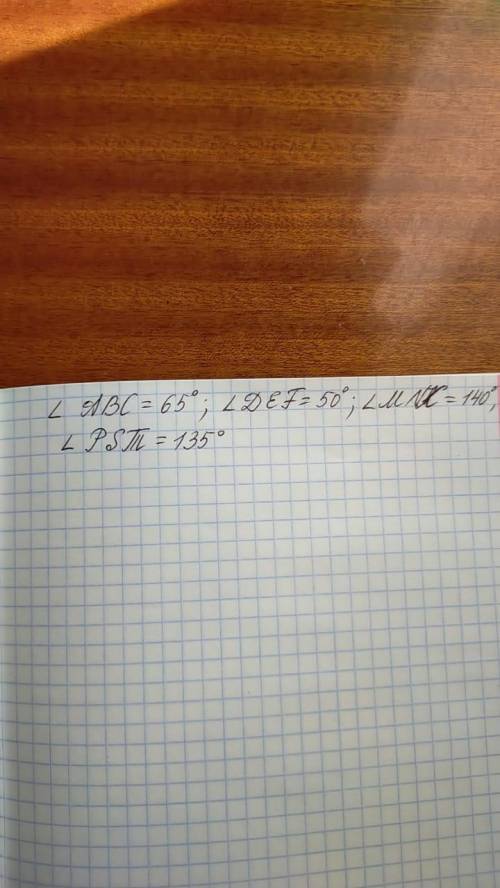 ∠ ABC = 65°; ∠DEF = 50°; ∠MNK = 140°,
∠ PST = 135°